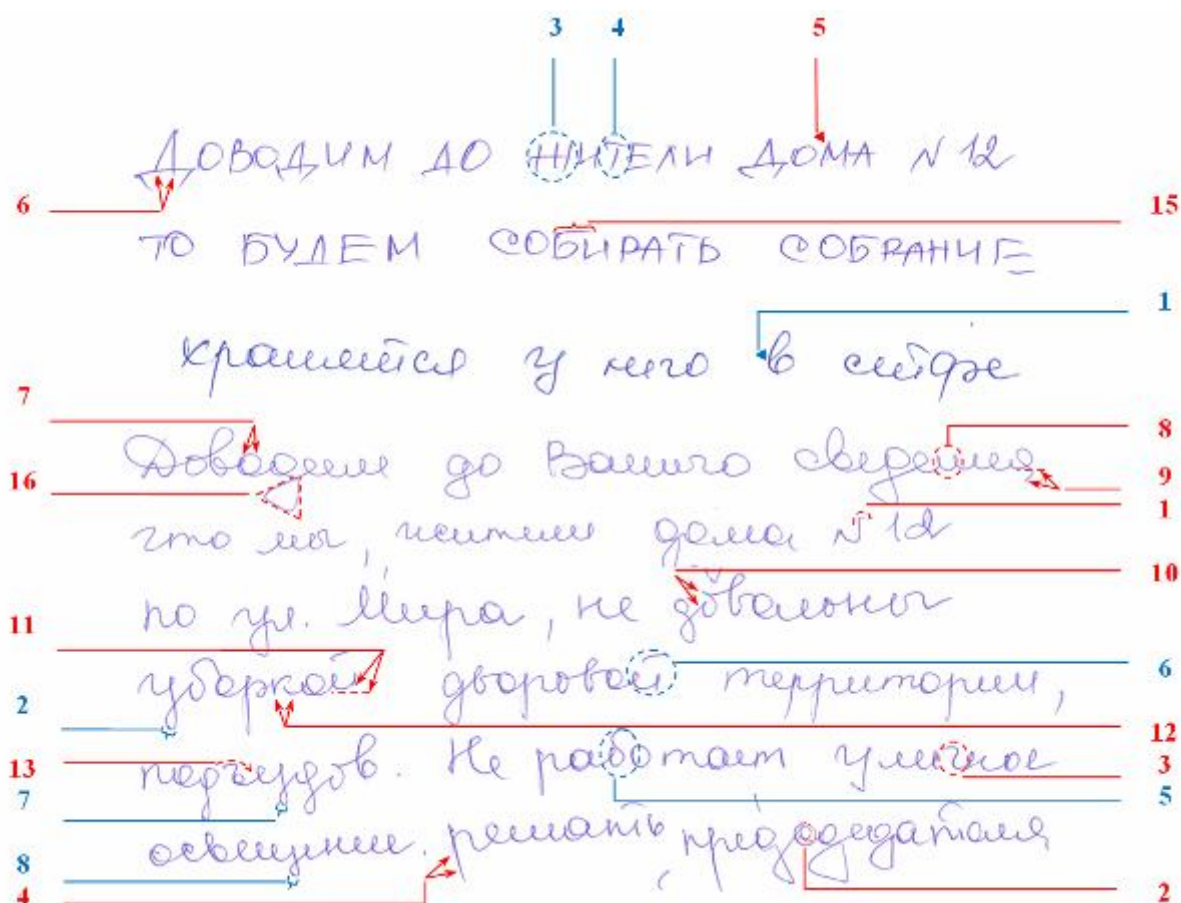 3 4 5
ДОВОДИМ ДО ЖИТЕЛИ ДОМА N 12
6 15
ТО БУДЕМ СОБИРАТЬ СОБРАНИЕ
1
у него в сейфе
7 8
Доводим до Вашего сведения,
16 9
1
что мы, жители дома N 12
10
по ул. Мира, не довальны
11
уборкой дворовой территории,
6
2 12
подъездов. Не работает уличное
13 3
7 5
освещение. решать,
8
4 2